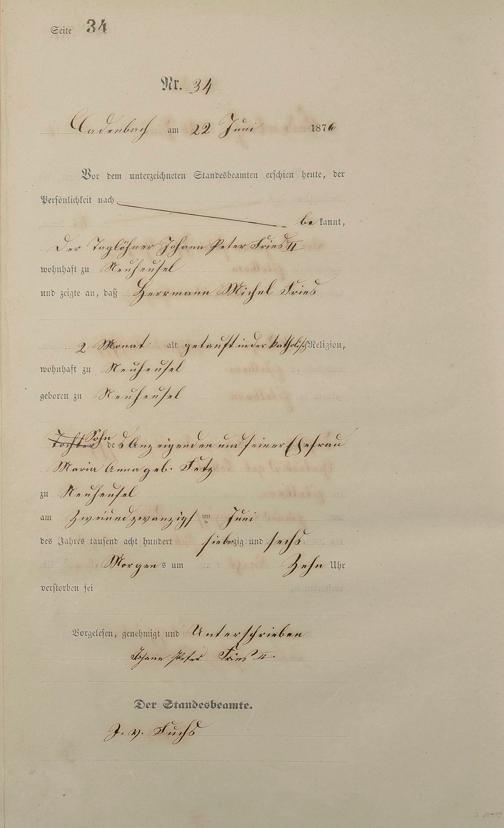 Seite 34
Nr. 34
Ladenbach am 22 Juni 1876
Vor dem unterzeichneten Standesbeamten erschien heute, der
Persönlichkeit nach
be kannt,
der Taglöhner Johann Peter Fries II
wohnhaft zu Neuheusel
und zeigte an, daß Herrmann Michel Fries
2 Monat alt getauft in der katholisch Religion,
wohnhaft zu Neuheusel
geboren zu Neuheusel
Tochter Sohn des Anzeigenden und seiner Ehefrau
Maria Anna geb. Fetz
zu Neuheusel
am Zweiundzwanzigst im Juni
des Jahres tausend acht hundert siebenzig und sechs
Morgens um Zehn Uhr
verstorben sei
Vorgelesen, genehmigt und Unterschrieben
Johann Peter Fries II.
Der Standesbeamte.
J. v. Fuchs